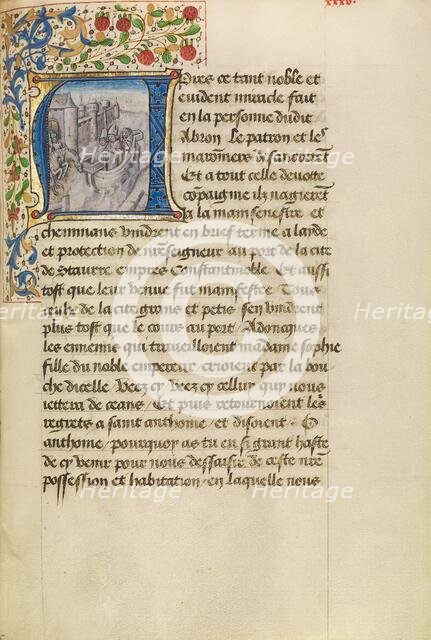 xxxv.
Apres ce tant noble et
euident miracle fait
en la personne dudit
Abron Le patron et les
maronniers
Et a tout celle deuotte
compaignie ilz nagierent
a la main senestre et
cheminans vindrent en brief terme a laide
et protection de nostre seigneur au port de la cite
de Staurre empres Constantinoble Et aussi
tost que leur venue fut manifestee Tous
ceulx de la cite grans et petis sen vindrent
plus tost que le cours au port Adoncques
les ennemis qui trauailloient madame sophie
fille du noble empereur crioient par la bou
che dicelle Veez cy Veez cy celluy quy nous
iettera de ceans Et puis retournoient les
regretz a saint anthome et disoient O
anthome pourquoy as tu eu si grant haste
de cy venir pour nous dessaisir de ceste nostre
possession et habitation en laquelle nous
Heritage Images
Heritage Images
Heritage Images
Heritage Images
Heritage Images
Heritage Images